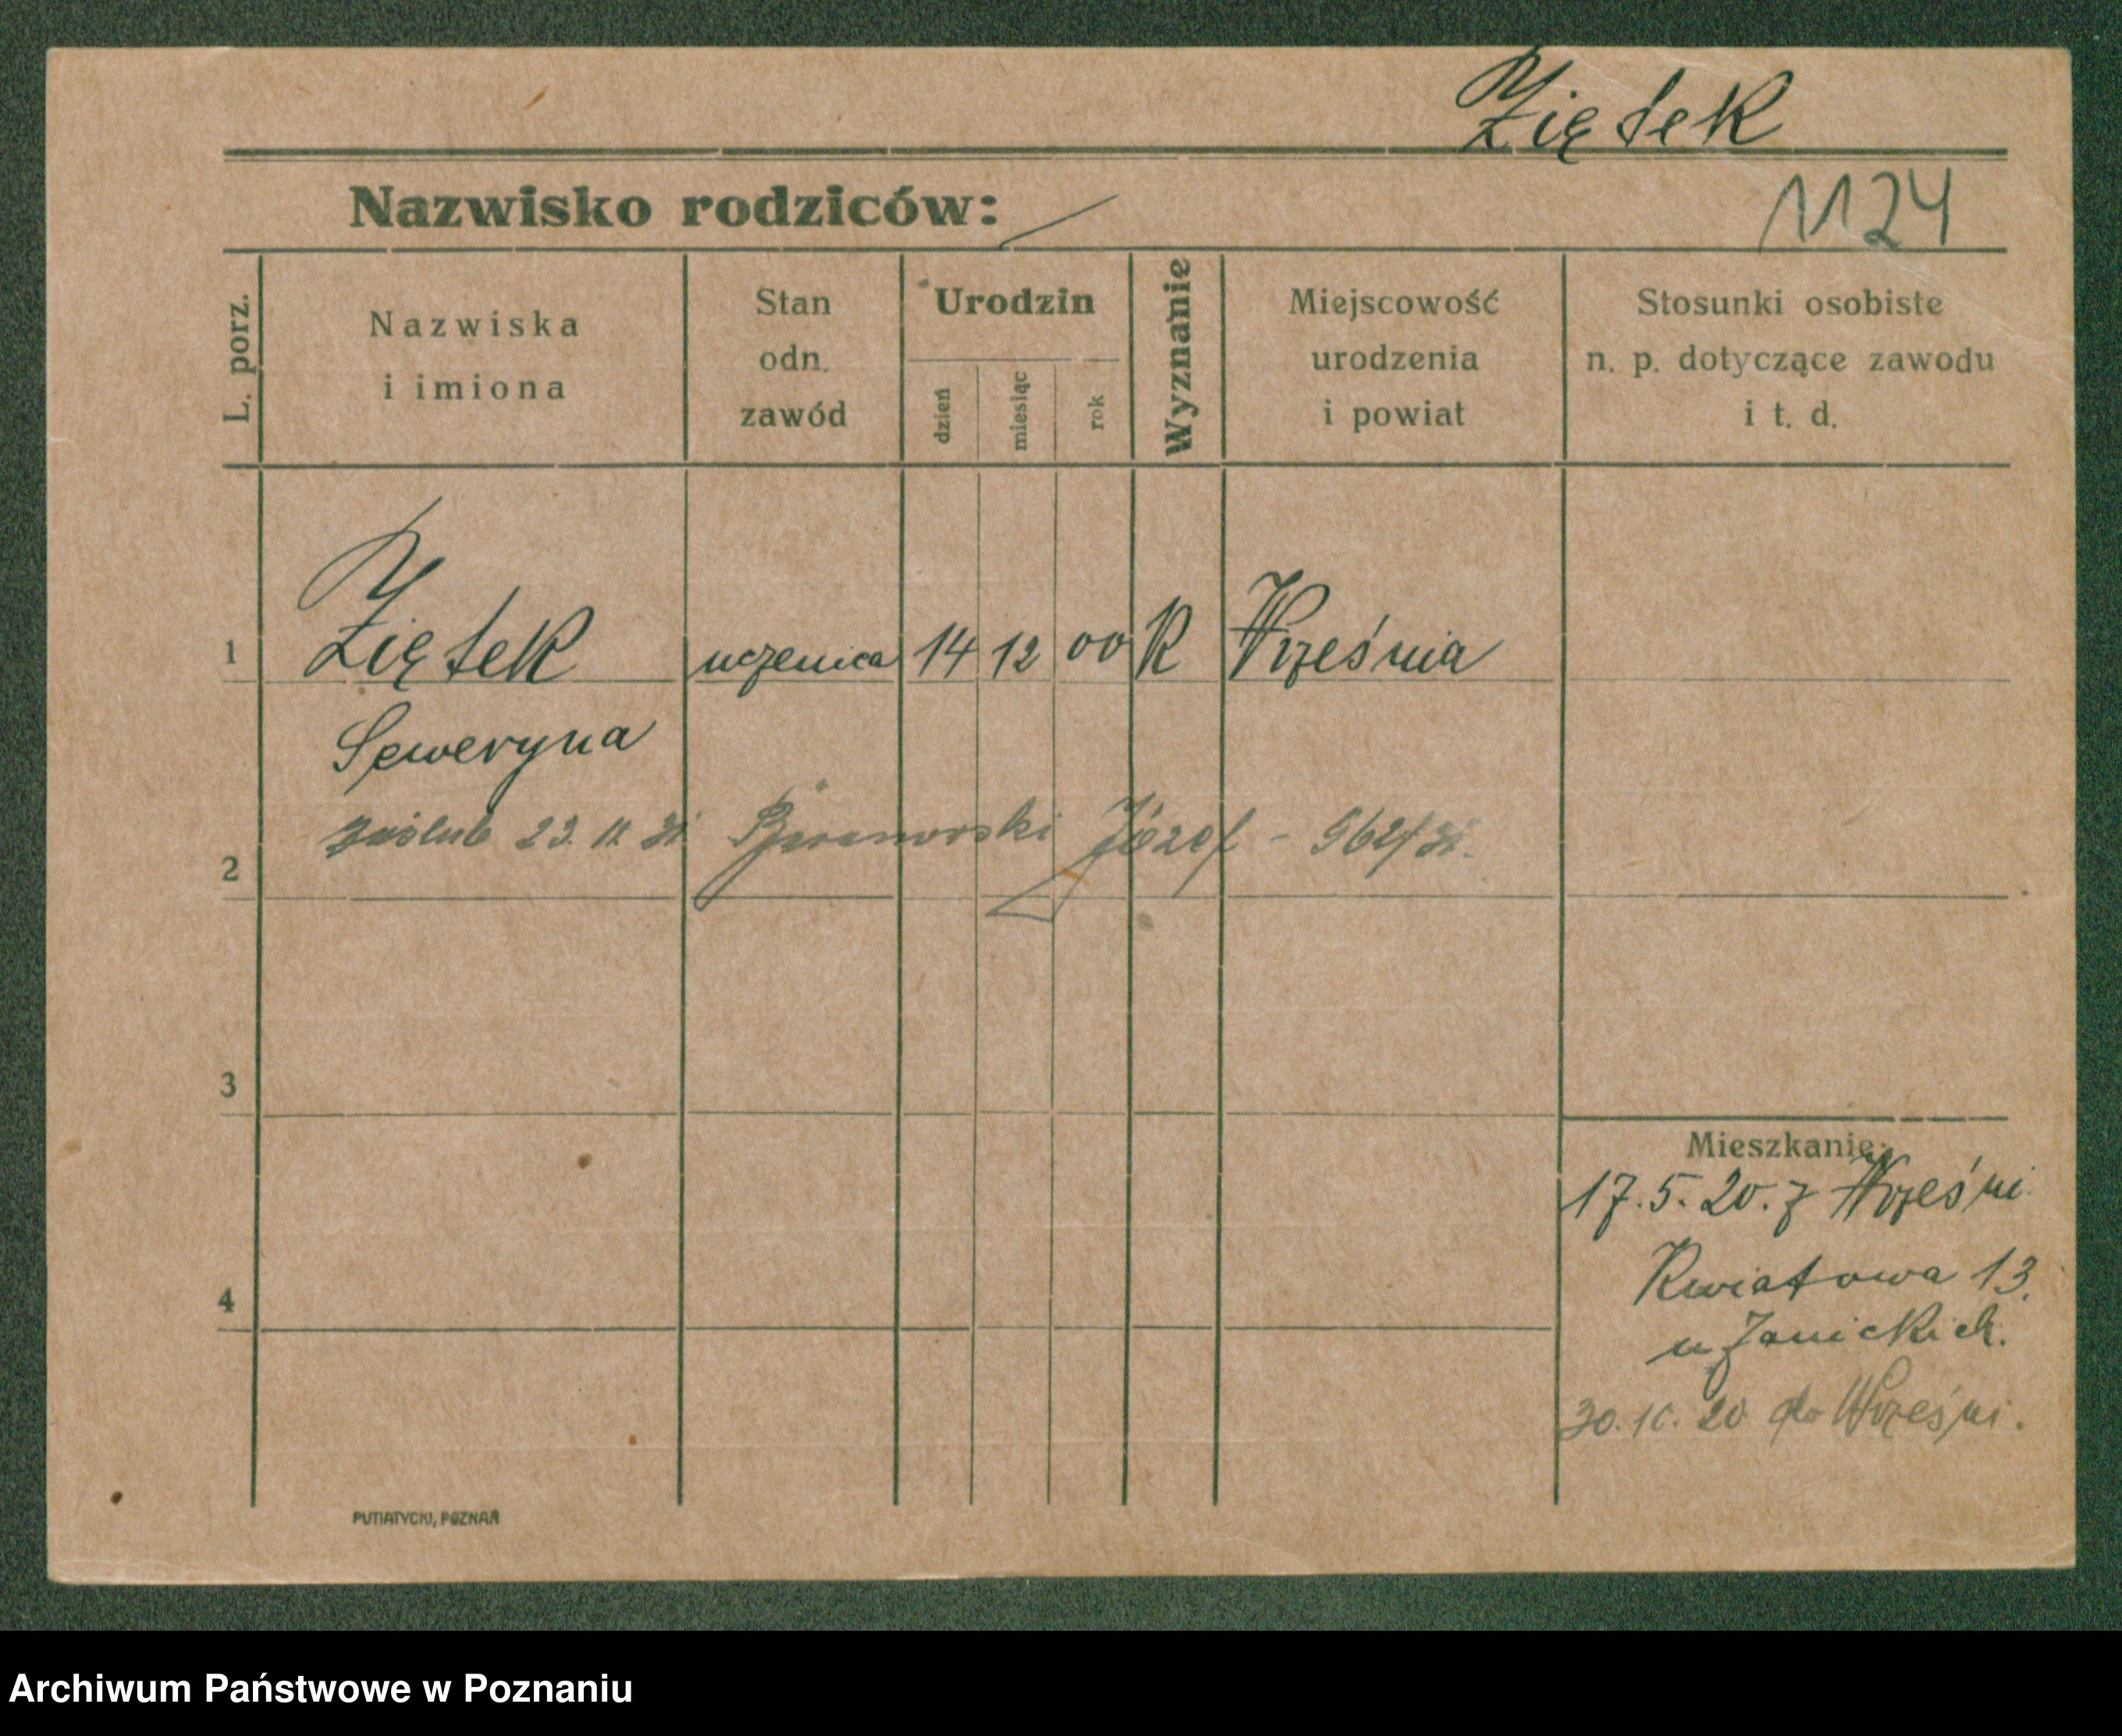 Ziętek
Nazwisko rodziców:
1124
L. porz.
Nazwiska
i imiona
Stan
odn.
zawód
Urodzin
dzień
miesiąc
rok
Wyznanie
Miejscowość
urodzenia
i powiat
Stosunki osobiste
n. p. dotyczące zawodu
i t. d.
1 Ziętek uczenica 14 12 00 K Września
Seweryna
2 zaślub 23. 11. 31 Józef -
3
Mieszkanie:
17.5.20. z Wrześni
Kwiatowa 13.
u Janickich.
4
30.10.20 do Wrześni.
PUTIATYCKI, POZNAŃ
Archiwum Państwowe w Poznaniu